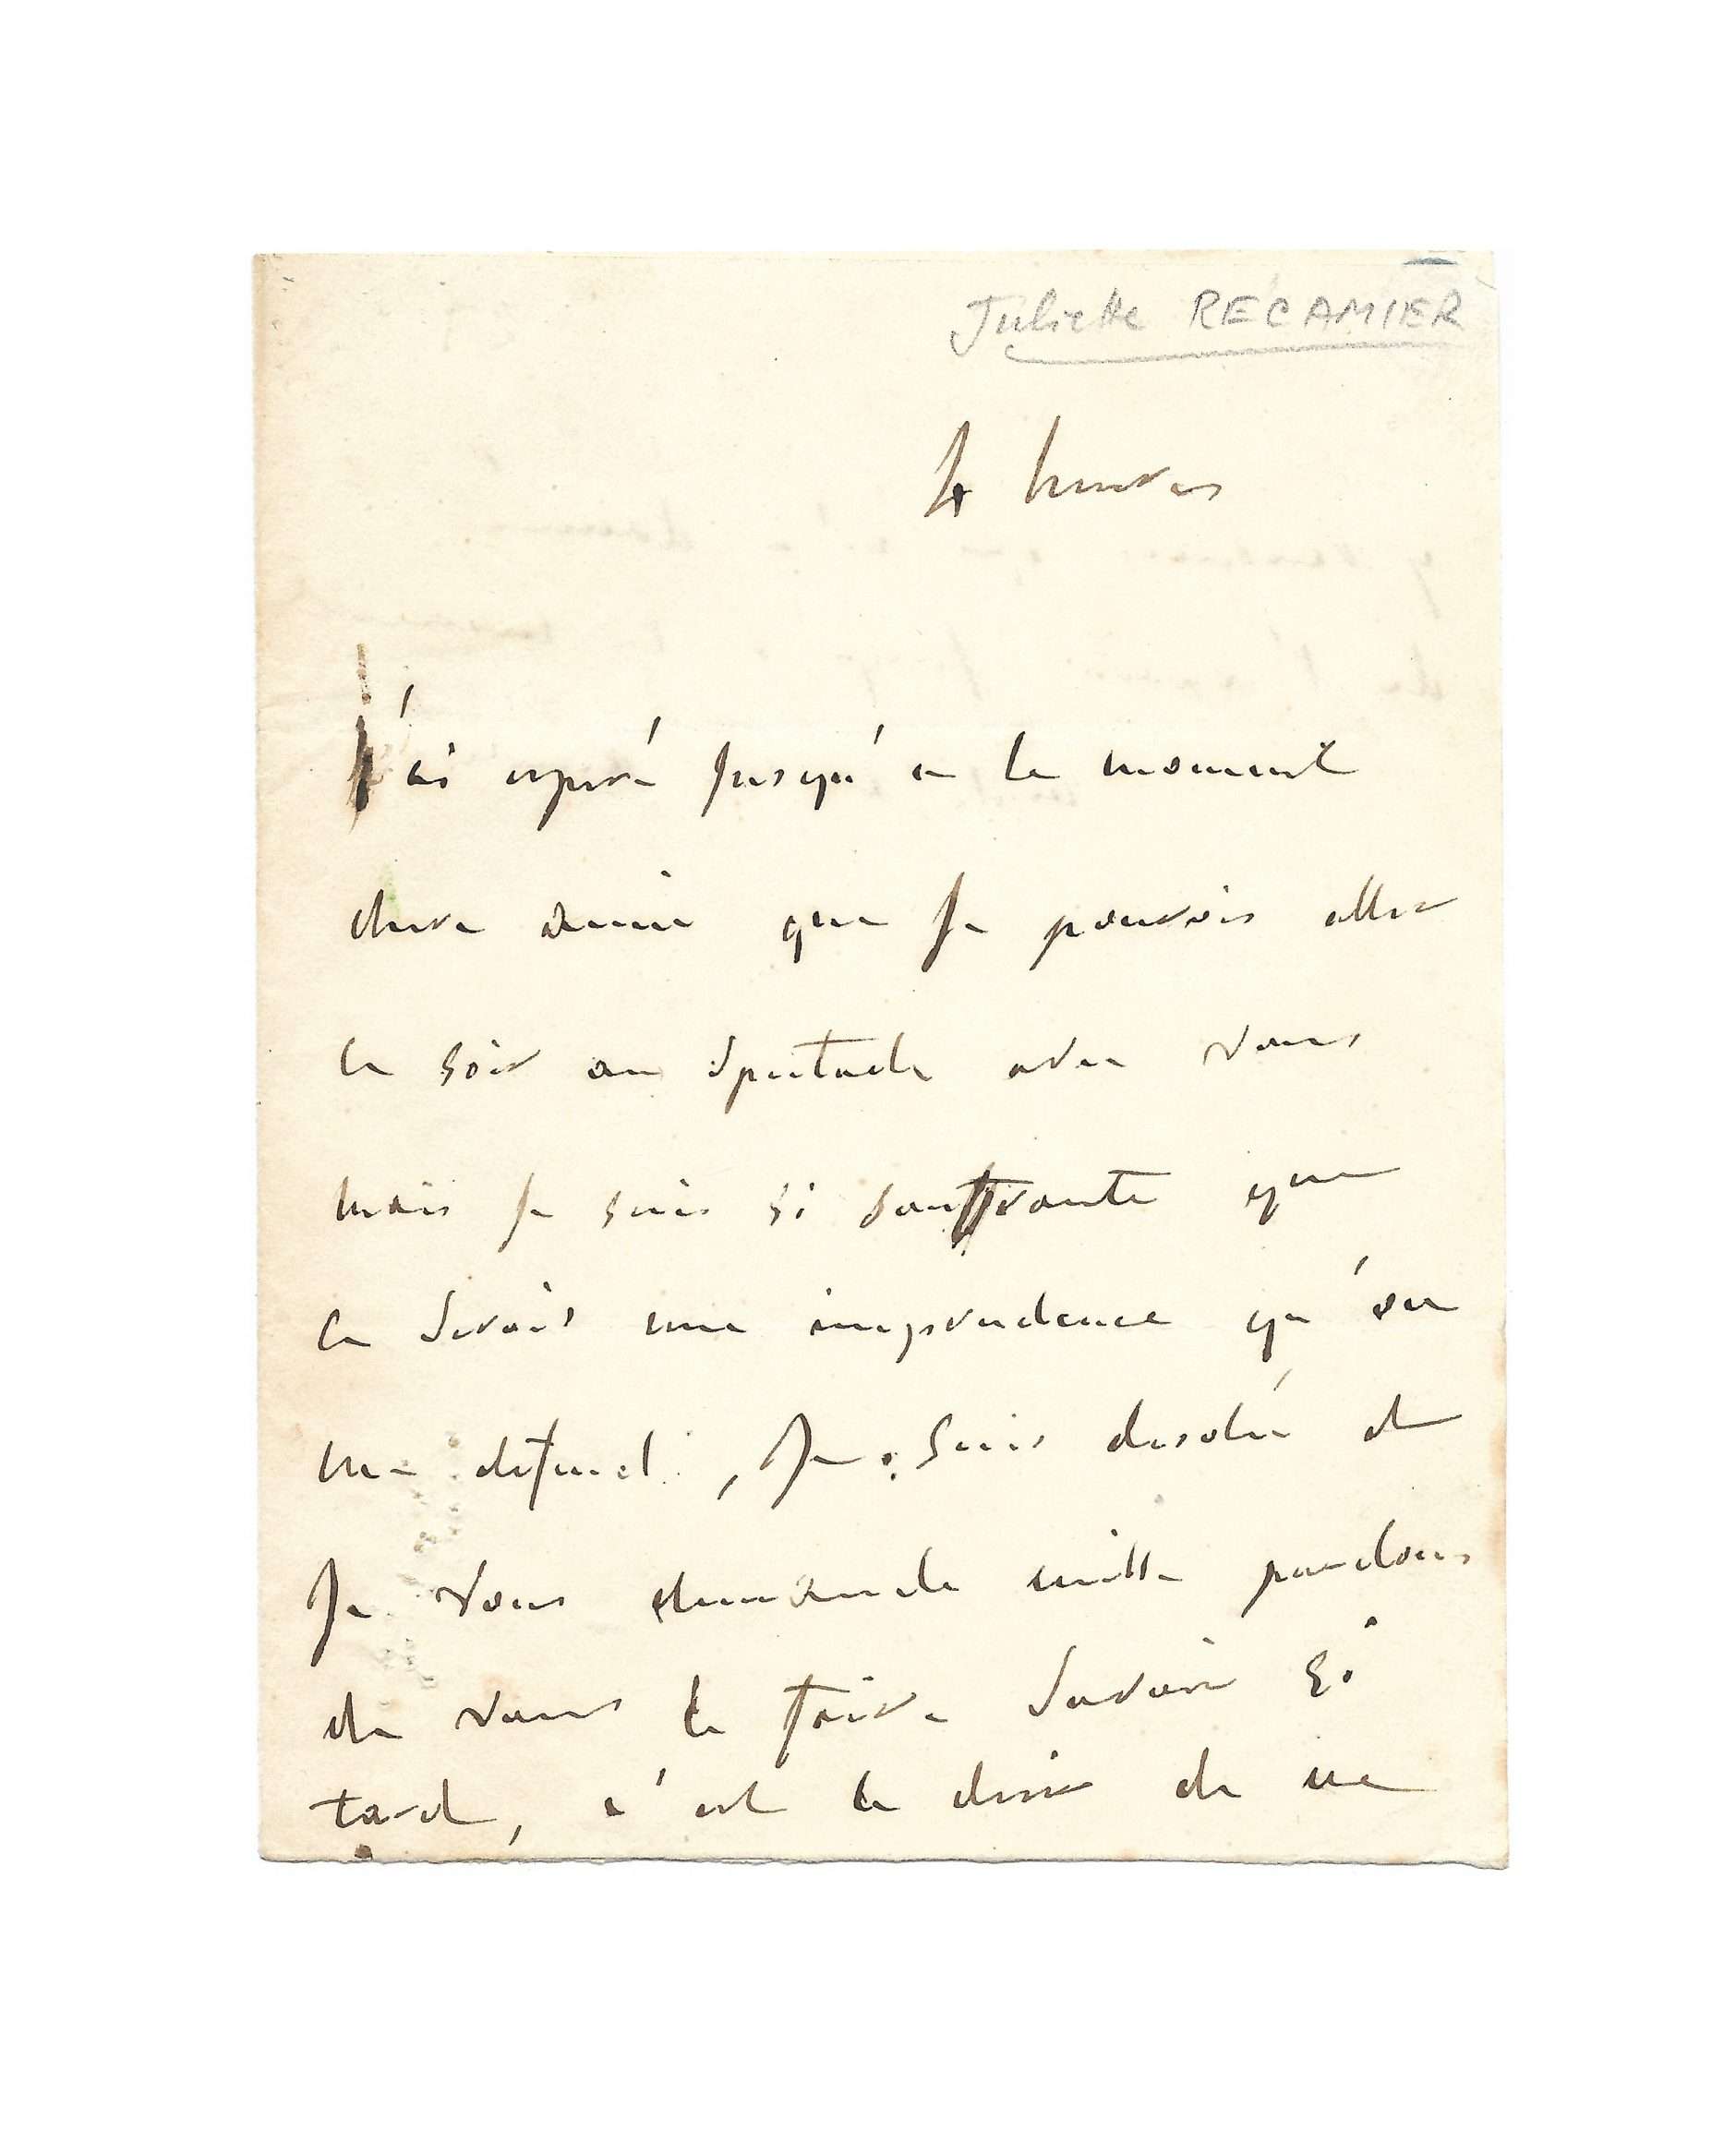 Juliette RECAMIER
4 heures
j'ai espéré jusqu'a ce moment
chere amie que je pourrois aller
ce soir au spectacle avec vous
mais je suis si souffrante que
ce serois une imprudence qu'on
me defend, je suis desolée et
je vous demande mille pardons
de vous le faire savoir si
tard, c'est le desir de ne